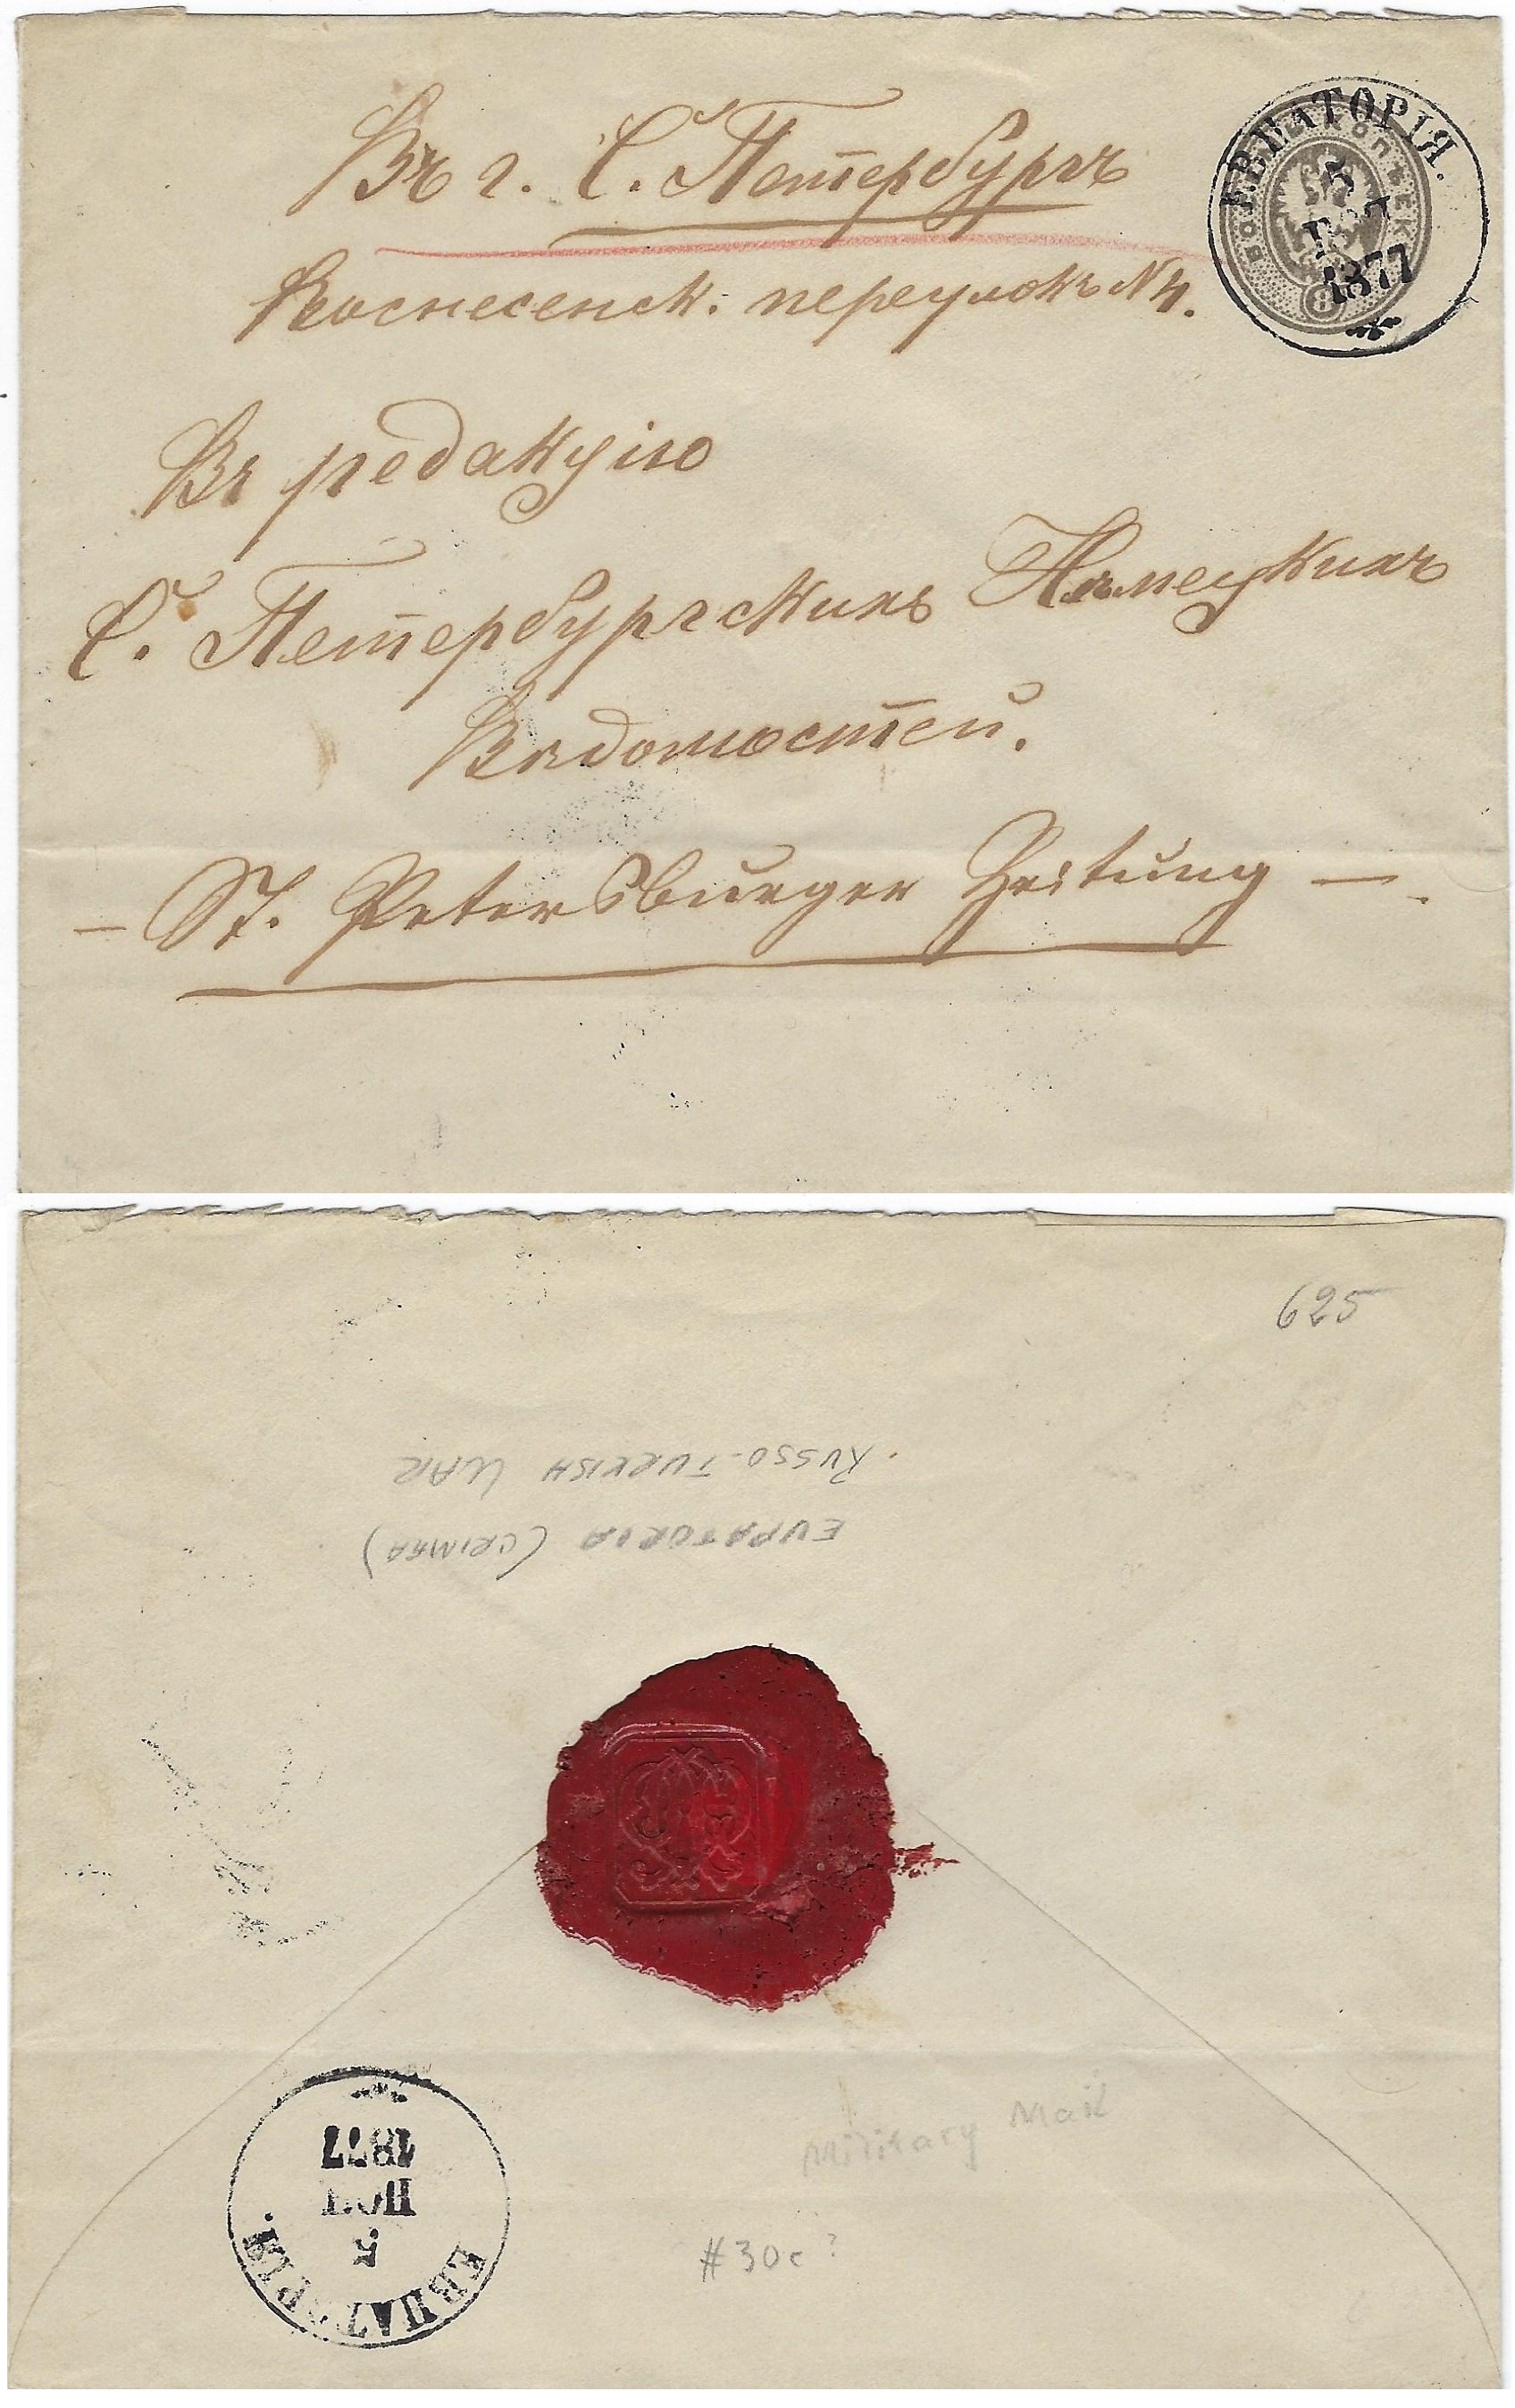 Въ г. С. Петербургъ
Вознесенск: переулокъ N 4.
Въ редакцію
С. Петербургскихъ Нѣмецкихъ
Вѣдомостей.
— St. Petersburger Zeitung —.
ЕВПАТОРІЯ.
5
1877
8
625
RUSSO-TURKISH WAR
EUPATORIA (CRIMEA)
1877
НОЯ
5
ЕВПАТОРІЯ.
Military Mail
#30c?